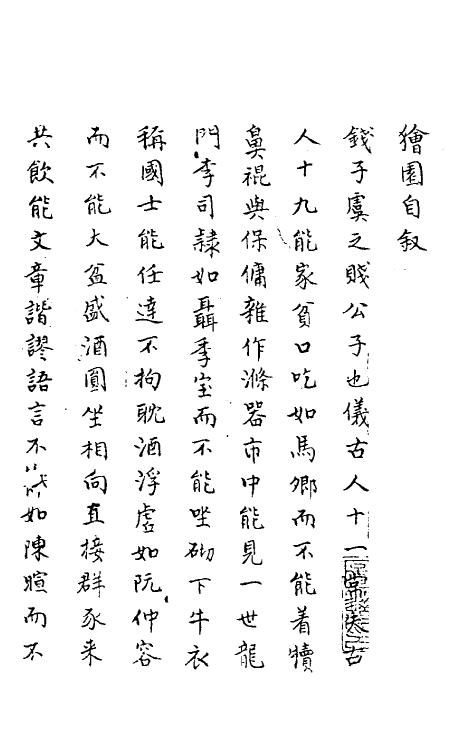 獪園自叙
錢子虞之賤公子也儀古人十一當失古
人十九能家貧口吃如馬卿而不能着犢
鼻裩與保傭雜作滌器市中能見一世龍
門李司隸如聶季宝而不能坐砌下牛衣
稱國士能任達不拘耽酒浮虛如阮仲容
而不能大盆盛酒圓坐相向直接群豕来
共飲能文章諧謬語言不節如陳暄而不